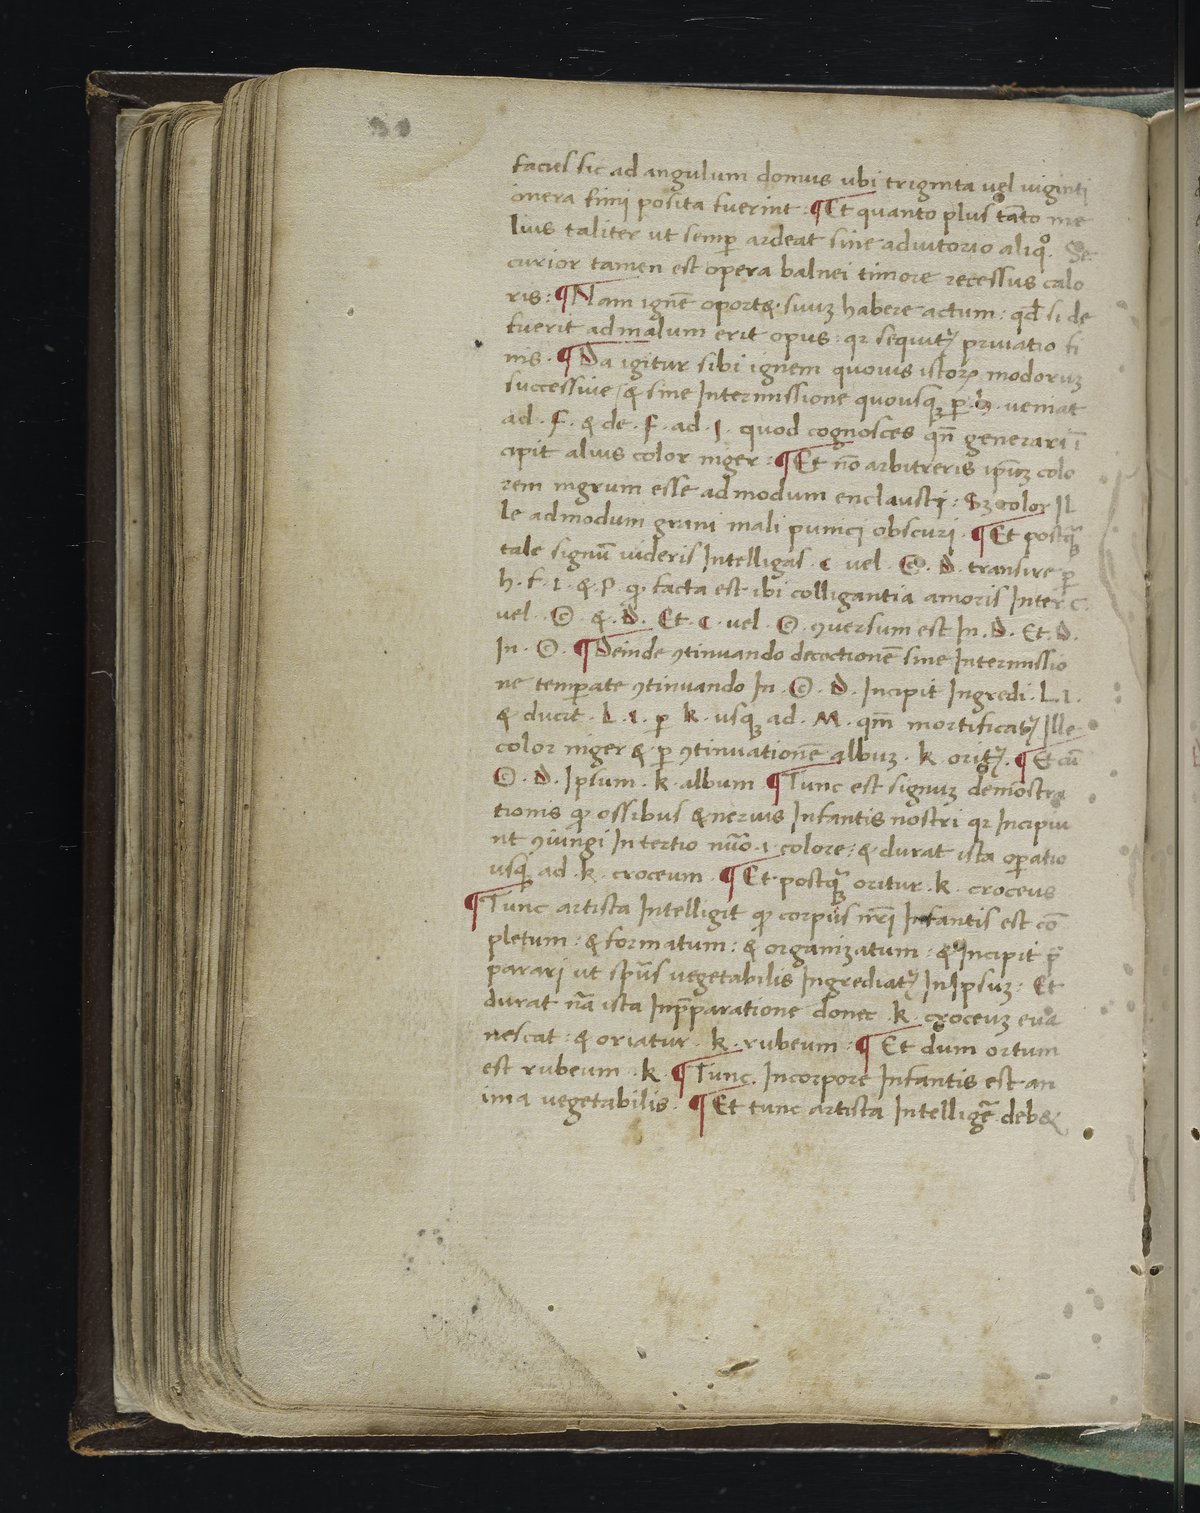 facies sic ad angulum domus ubi triginta uel uiginti
onera fimi posita fuerint : ¶ Et quanto plus tãto me
lius taliter ut semp̱ ardeat sine adiutorio aliqº. Se
curior tamen est opera balnei timore recessus calo
ris : ¶ Nam ignẽ oport& · suuʒ habere actum : qđ si de
fuerit ad malum erit opus : qꝛ sequitʳ priuatio fi
nis · ¶ Da igitur sibi ignem quouis istoꝝ modoruʒ
successiue / & sine Intermissione quousqꝫ p̱ · h · ueniat
ad · F · & de · F · ad · I · quod cognosces qñ generari ĩ
cipit alius color niger : ¶ Et nõ arbitreris ip̃uʒ colo
rem nigrum esse ad modum enclausti : Sʒ color Il
le admodum grani mali punici obscuri · ¶ Et postqꝫ̃
tale signũ uideris Intelligas · C · uel · © · D · transire p̱
h · F · I · & · P · ꝙ facta est ibi colligantia amoris Inter C ·
uel · © · & · D · Et · C · uel · © · ꝯuersum est In · D · Et · D ·
In · © · ¶ Deinde ꝯtinuando decoctionẽ sine Intermissio
ne temp̱ate ꝯtinuando In · © · D · Incipit Ingredi · L · I ·
& ducit · L · I · p̱ k · usqꝫ ad · M · qm̃ mortificatʳ Ille
color niger & · p̱ ꝯtinuationẽ albuʒ · k · oritʳ · ¶ Et cũ
© · D · Ipsum · k · album ¶ Tunc est signuʒ demostra
tionis ꝙ ossibus & neruis Infantis nostri qꝛ Incipiu
nt ꝯiungi In tertio nũo · i · colore : & durat ista op̱atio
usqꝫ ad · k · croceum · ¶ Et postqꝫ̃ oritur · k · croceus
¶ Tunc artista Intelligit ꝙ corpus nr̃i Infantis est cõ
pletum : & formatum : & organizatum : & Incipit p̃
parari ut sp̃us uegetabilis Ingrediatʳ In Ipsuʒ : Et
durat nr̃a ista In p̃paratione donec · k · croceuʒ eua
nescat : & oriatur · k · rubeum : ¶ Et dum ortum
est rubeum · k · ¶ Tunc · In corpore Infantis est an
ima uegetabilis · ¶ Et tunc artista Intelligẽ deb&